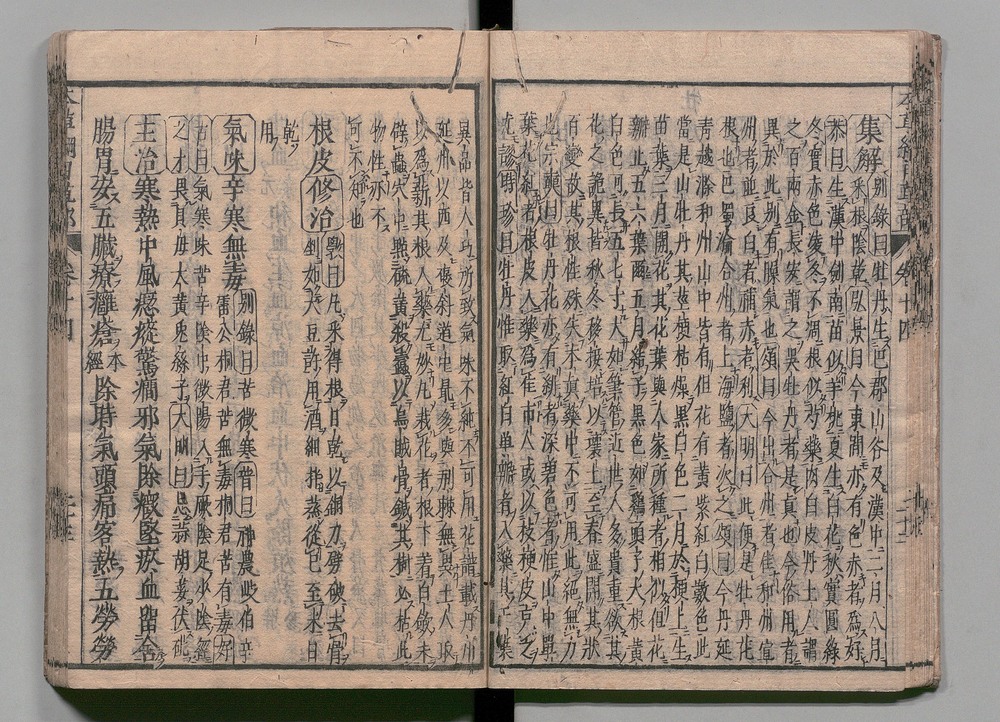 集解別錄曰牡丹生巴郡山谷及漢中二月八月
采根陰乾弘景曰今東間亦有色赤者為好
恭曰生漢中劍南苗似羊桃夏生白花秋實圓綠
冬實赤色凌冬不凋根似芍藥肉白皮丹土人謂
之百兩金長安謂之吳牡丹者是真也今俗用者
異於此別有臊氣也頌曰今出合州者佳和州宣
州者並良白者補赤者利大明曰此便是牡丹花
根也巴蜀渝合州者上海鹽者次之頌曰今丹延
青越滁和州山中皆有但花有黃紫紅白數色此
當是山牡丹其莖梗枯燥黑白色二月於梗上生
苗葉三月開花其花葉與人家所種者相似但花
瓣止五六葉爾五月結子黑色如雞頭子大根黃
白色可長五七寸大如筆管近世人多貴重欲其
花之詭異皆秋冬移接培以壤土至春盛開其狀
百變故其根性殊失本真藥中不可用此絕無力
也宗奭曰牡丹花亦有緋者深碧色者惟山中單
葉花紅者根皮入藥為佳市人或以枝梗皮充之
尤謬時珍曰牡丹惟取紅白單瓣者入藥其千葉
異品皆人巧所致氣味不純不可用花譜載丹州
延州以西及褒斜道中最多與荊棘無異土人取
以為薪其根入藥尤妙凡栽花者根下著白斂末
辟蟲穴中點硫黃殺蠹以烏賊骨鍼其樹必枯此
物性亦不
可不知也
根皮修治斅曰凡采得根日乾以銅刀劈破去骨
剉如大豆許用酒細拌蒸從巳至未日
乾
用
氣味辛寒無毒別錄曰苦微寒普曰神農岐伯辛
雷公桐君苦無毒桐君苦有毒好
古曰氣寒味苦辛陰中微陽入手厥陰足少陰經
之才曰畏貝母大黃兔絲子大明曰忌蒜胡荽伏砒
主治寒熱中風瘛瘲驚癇邪氣除癥堅瘀血留舍
腸胃安五臟療癰瘡本經除時氣頭痛客熱五勞勞